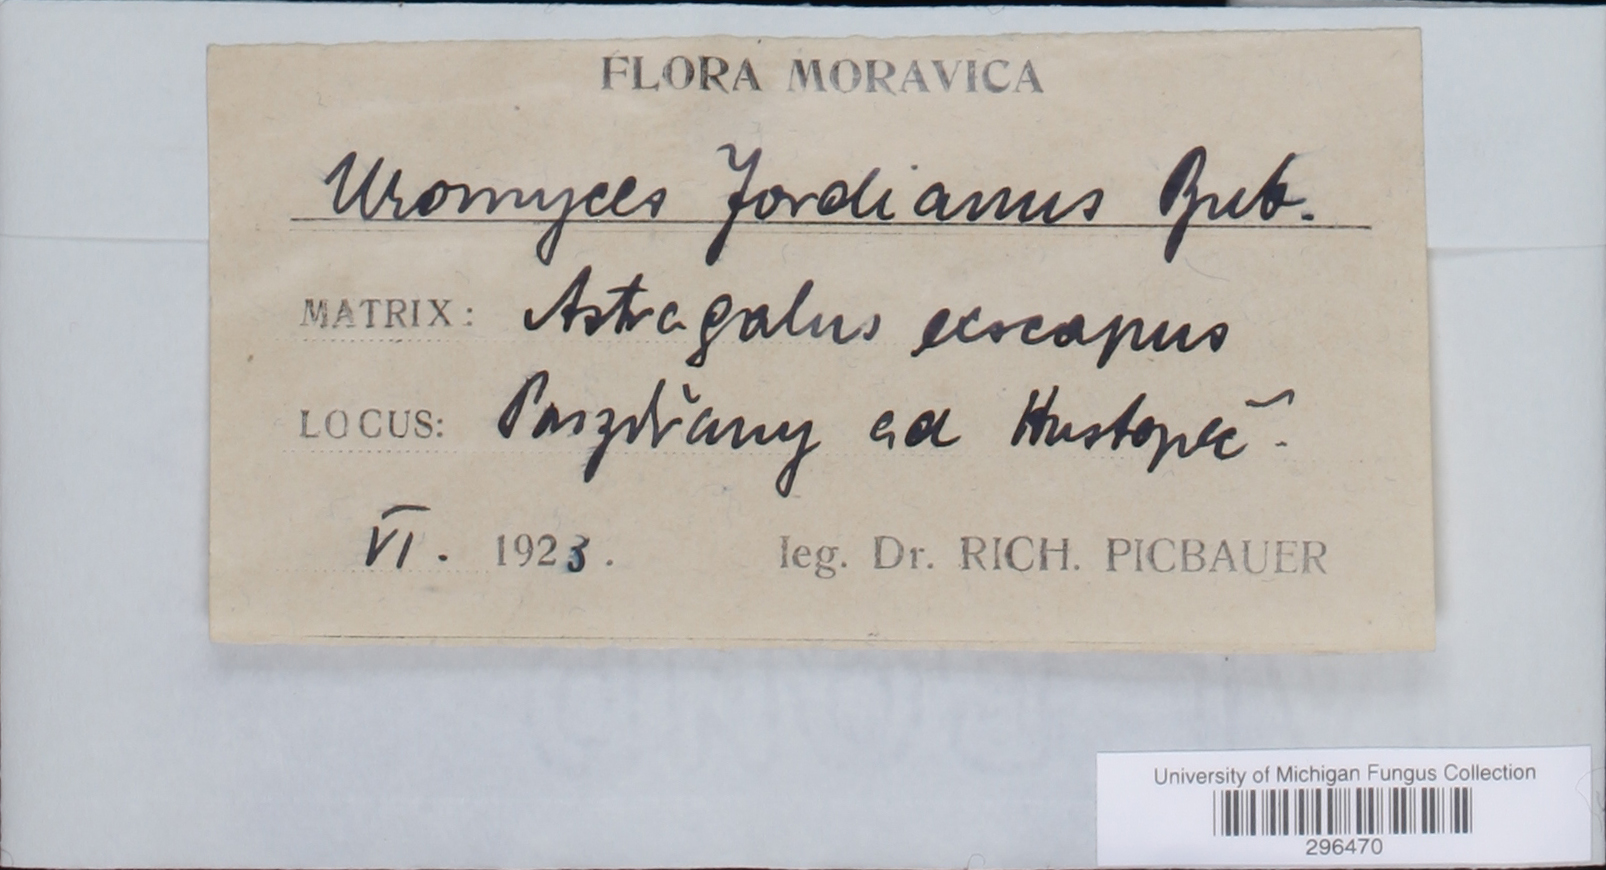 FLORA MORAVICA
Uromyces Jordianus Bub.
MATRIX: Astragalus exscapus
LOCUS: Pouzdřany ad Hustopeč.
VI. 1923.
leg. Dr. RICH. PICBAUER
University of Michigan Fungus Collection
296470